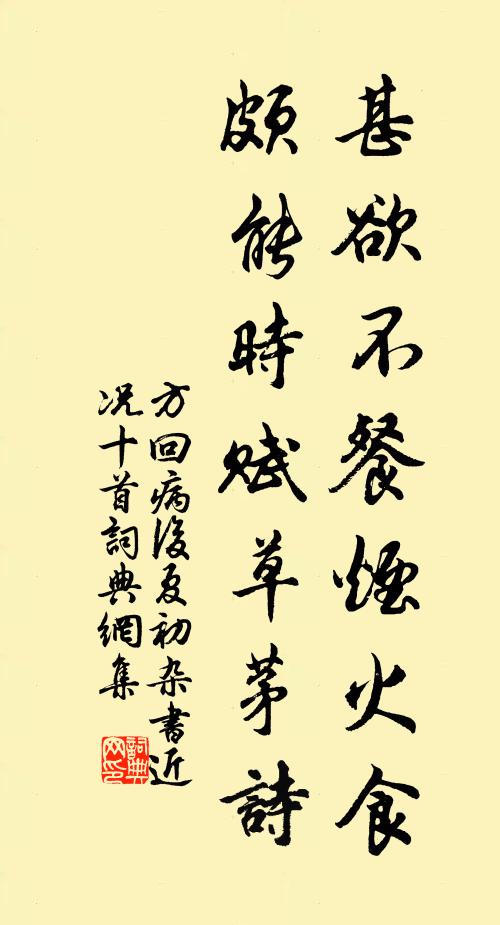 甚欲不餐煙火食
頗能時賦草茅詩
方回病後夏初杂書近
况十首詞典網集
詞典
网印